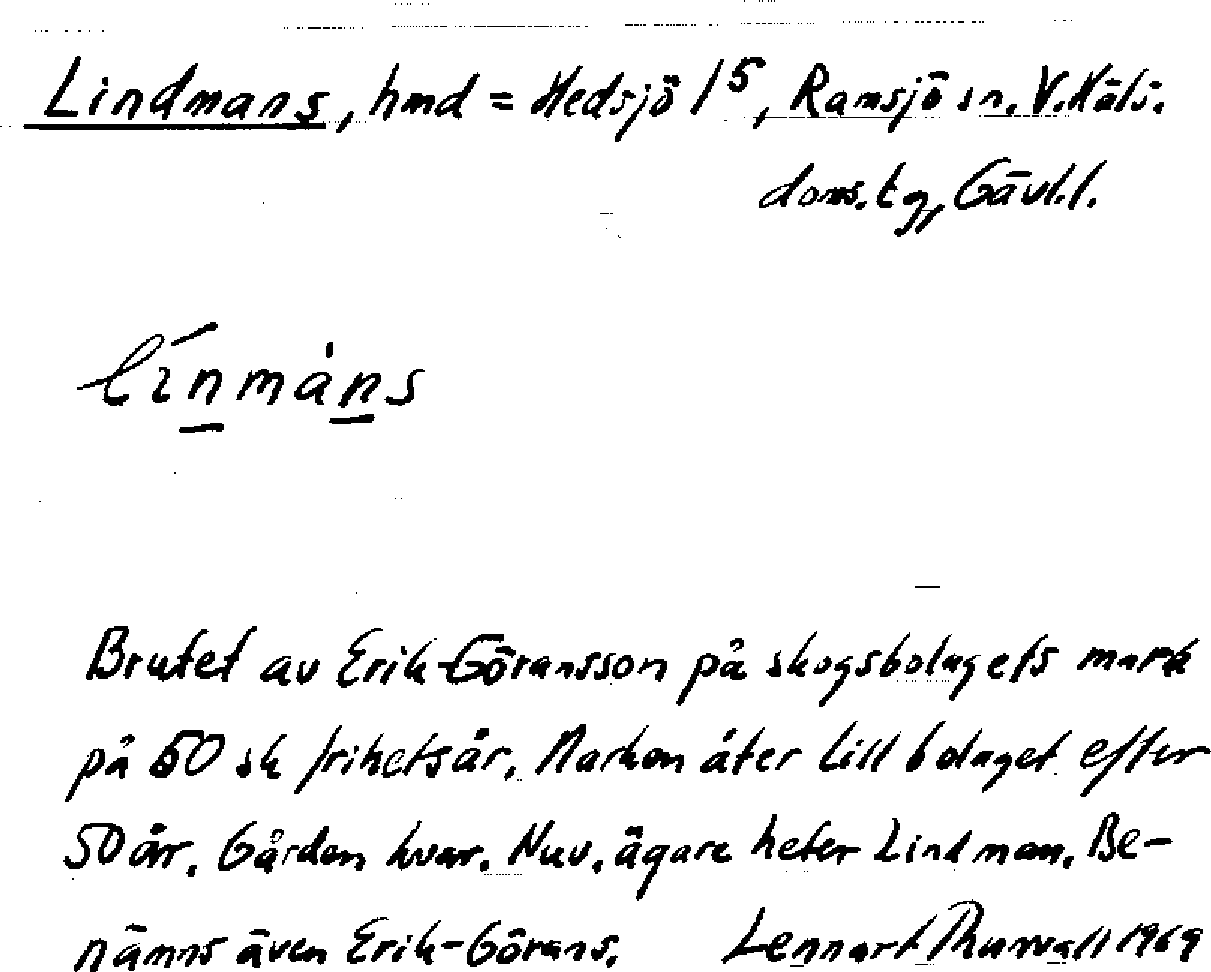 Lindmans, hmd = Hedsjö 1⁵, Ramsjö sn. V. Häls.
doms. tg, Gävl. l.
línmàns
Brutet av Erik-Göransson på skogsbolagets mark
på 50 sk frihetsår. Marken åter till bolaget efter
50 år. Gården kvar. Nuv. ägare heter Lindman. Be-
nämns även Erik-Görans. Lennart Thurvall 1969